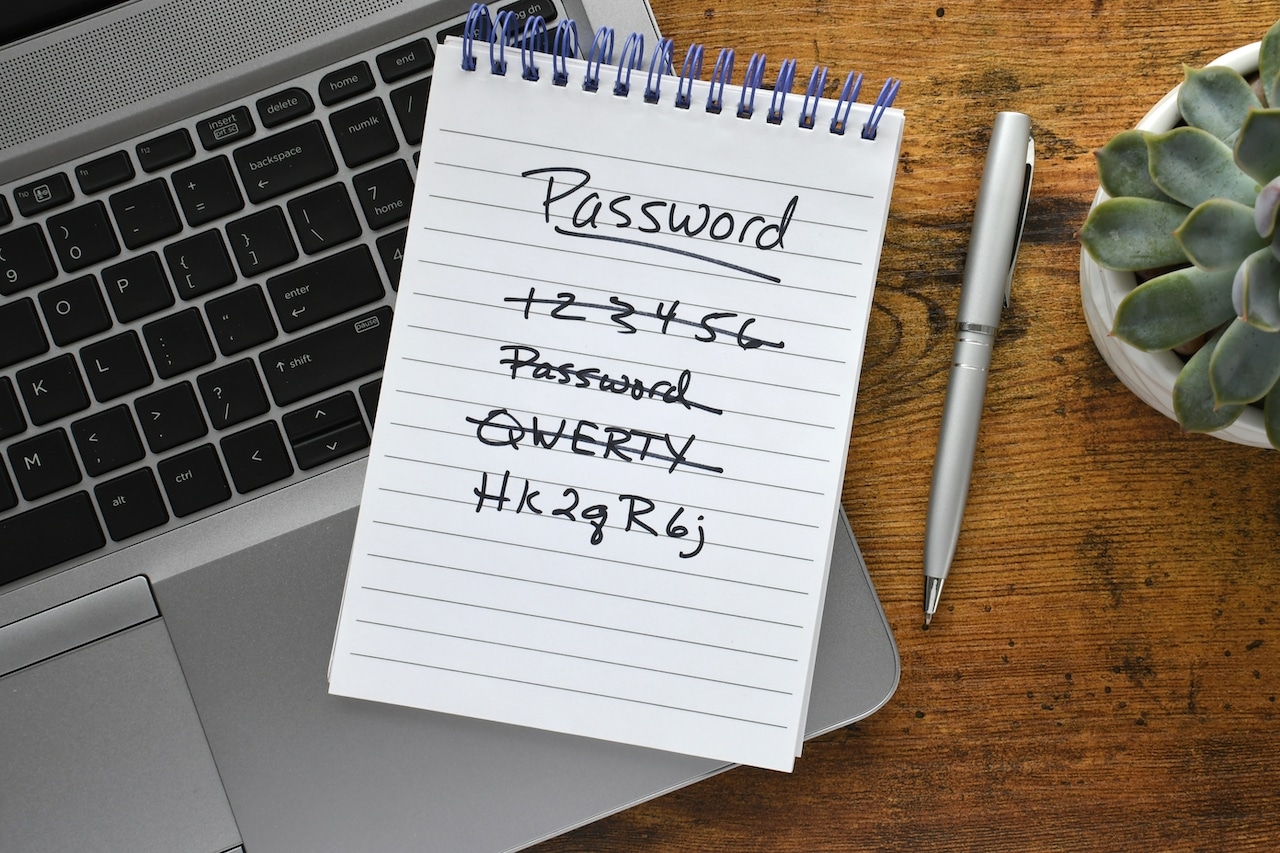 Password
123456
Password
QWERTY
Hk2gR6j
pg dn
end
home
delete
insert
prt sc
f12
f11
f10
/
numlk
backspace
+ =
_ -
) 0
( 9
7 home
| \
} ]
{ [
P
O
4
enter
" '
: ;
L
K
pause
shift
? /
> .
< ,
M
ctrl
alt